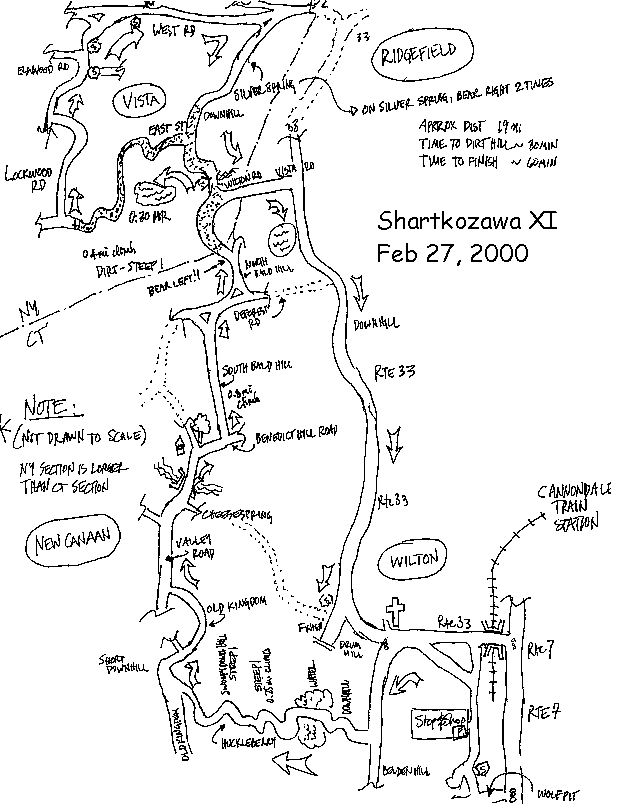 WEST RD
33
RIDGEFIELD
ELMWOOD RD
VISTA
SILVER SPRING
ON SILVER SPRING, BEAR RIGHT 2 TIMES
DOWNHILL
EAST ST
APPROX DIST 19 mi
TIME TO DIRT HILL ~ 30 MIN
TIME TO FINISH ~ 60 MIN
LOCKWOOD RD
WILTON RD
VISTA RD
Shartkozawa XI
Feb 27, 2000
0.4 mi climb
DIRT - STEEP!
BEAR LEFT!!
NORTH BALD HILL
NY
CT
DEFOREST RD
DOWNHILL
SOUTH BALD HILL
0.8 mi climb
RTE 33
NOTE:
(NOT DRAWN TO SCALE)
NY SECTION IS LARGER
THAN CT SECTION
BENEDICT HILL ROAD
CANNONDALE
TRAIN
STATION
Rte 33
CHEESESPRING
NEW CANAAN
VALLEY
ROAD
WILTON
OLD KINGDOM
FINISH
Rte 33
Rte 7
DRUM HILL
SHORT
DOWNHILL
STEEP!
STEEP!
0.25 mi CLIMB
WATER
DOWNHILL
RTE 7
Stop & Shop
P
OLD KINGDOM
HUCKLEBERRY
BELDEN HILL
S
WOLFPIT